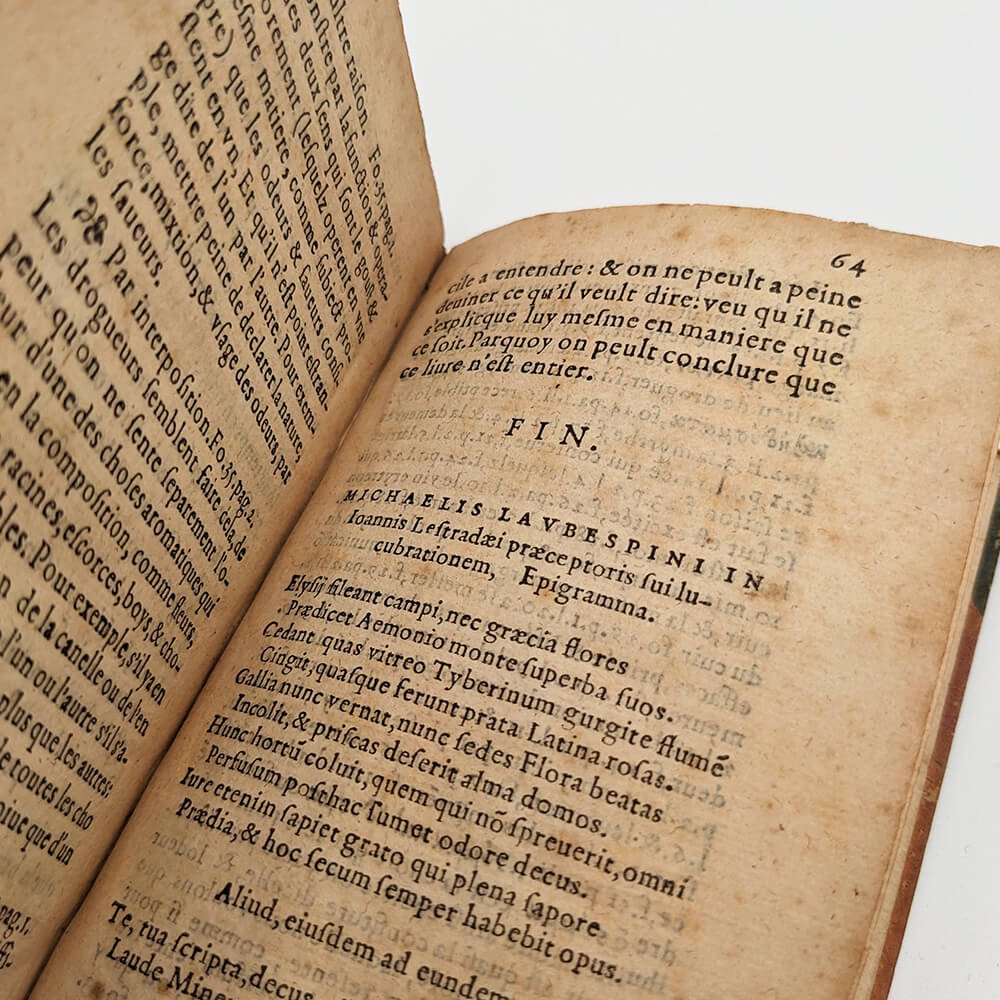 ultre raison. Fo.35.pag.1.
onstre par la function & opera-
des deux sens qui sont le goust &
orement (lesquelz operent en vne
esme matiere, comme subiect pro-
pre) que les odeurs & saueurs consi-
stent en vn, Et qu'il n'est point estran-
ge dire de l'un par l'autre. Pour exem-
ple, mettre peine de declarer la nature,
force, mixtion, & vsage des odeurs, par
les saueurs.
Par interposition. Fo.35.pag.2.
Les drogueurs semblent faire cela, de
peur qu'on ne sente separement l'o-
eur d'une des choses aromatiques qui
en la composition, comme fleurs,
racines, escorces, boys, & cho-
bles. Pour exemple, s'il y a en
n de la canelle ou de l'en
l'un ou l'autre s'il s'a-
plus que les autres:
e toutes les cho
que d'un
pag.1.
64
cile a entendre: & on ne peult a peine
deuiner ce qu'il veult dire: veu qu il ne
s'explicque luy mesme en maniere que
ce soit. Parquoy on peult conclure que
ce liure n'est entier.
FIN.
MICHAELIS LAVBESPINI IN
Ioannis Lestradæi præceptoris sui lu-
cubrationem, Epigramma.
Elysij sileant campi, nec græcia flores
Prædicet Aemonio monte superba suos.
Cedant quas vitreo Tyberinum gurgite flumē
Cingit, quasque ferunt prata Latina rosas.
Gallia nunc vernat, nunc sedes Flora beatas
Incolit, & priscas deserit alma domos.
Hunc hortū coluit, quem qui nō spreuerit, omni
Perfusum posthac sumet odore decus.
Iure etenim sapiet grato qui plena sapore
Prædia, & hoc secum semper habebit opus.
Aliud, eiusdem ad eundem
Te, tua scripta, decus
Laude Miner